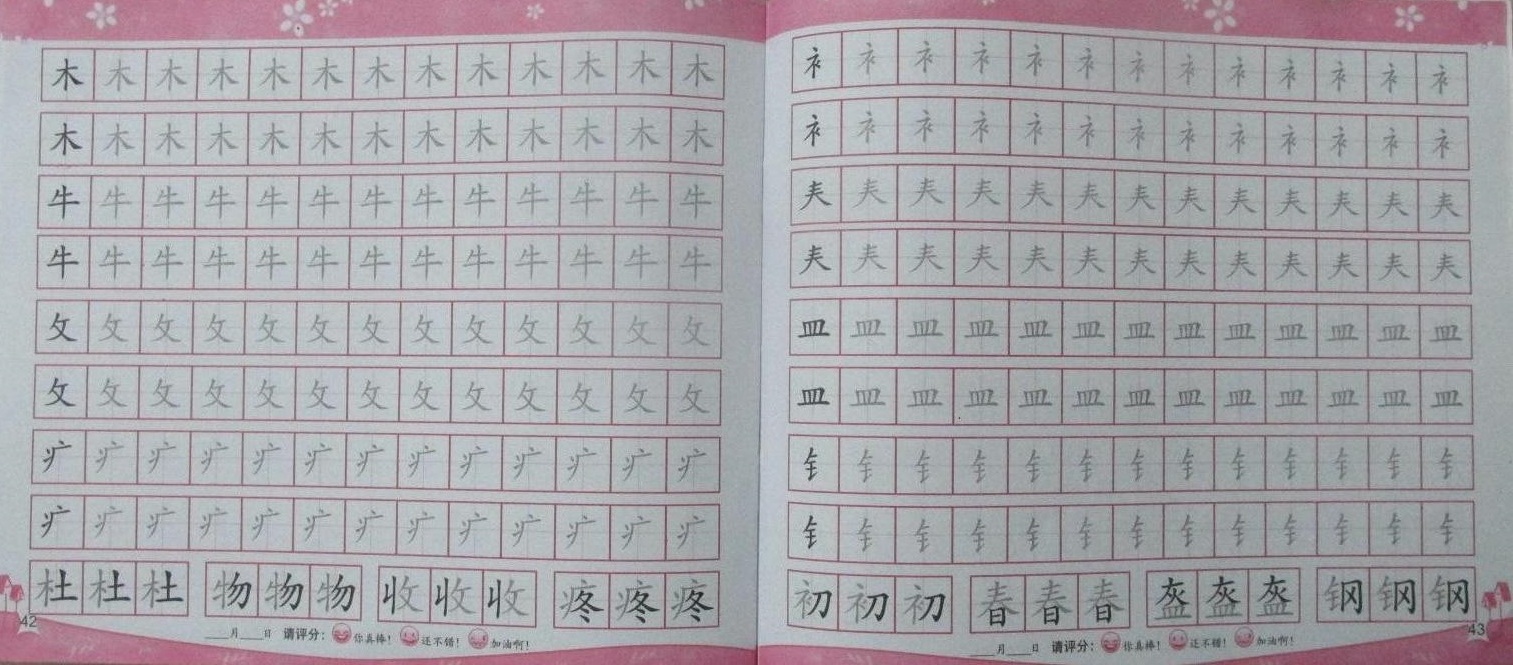 木木木木木木木木木木木木木
木木木木木木木木木木木木木
牛牛牛牛牛牛牛牛牛牛牛牛牛
牛牛牛牛牛牛牛牛牛牛牛牛牛
攵攵攵攵攵攵攵攵攵攵攵攵攵
攵攵攵攵攵攵攵攵攵攵攵攵攵
疒疒疒疒疒疒疒疒疒疒疒疒疒
疒疒疒疒疒疒疒疒疒疒疒疒疒
杜杜杜 物物物 收收收 疼疼疼
42
____月____日 请评分: 你真棒! 还不错! 加油啊!
衤衤衤衤衤衤衤衤衤衤衤衤衤
衤衤衤衤衤衤衤衤衤衤衤衤衤
𡗗𡗗𡗗𡗗𡗗𡗗𡗗𡗗𡗗𡗗𡗗𡗗𡗗
𡗗𡗗𡗗𡗗𡗗𡗗𡗗𡗗𡗗𡗗𡗗𡗗𡗗
皿皿皿皿皿皿皿皿皿皿皿皿皿
皿皿皿皿皿皿皿皿皿皿皿皿皿
钅钅钅钅钅钅钅钅钅钅钅钅钅
钅钅钅钅钅钅钅钅钅钅钅钅钅
初初初 春春春 盔盔盔 钢钢钢
43
____月____日 请评分: 你真棒! 还不错! 加油啊!